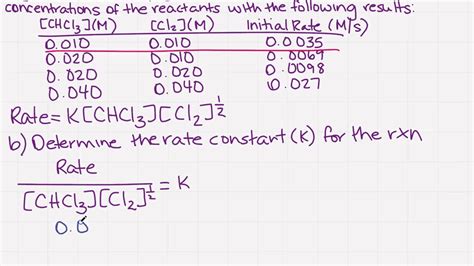 concentrations of the reactants with the following results:
[CHCl₃](M) [Cl₂](M) Initial Rate (M/s)
0.010 0.010 0.0035
0.020 0.010 0.0069
0.020 0.020 0.0098
0.040 0.040 0.027
Rate = K[CHCl₃][Cl₂]^½
b) Determine the rate constant (K) for the rxn
Rate
[CHCl₃][Cl₂]^½ = K
0.0